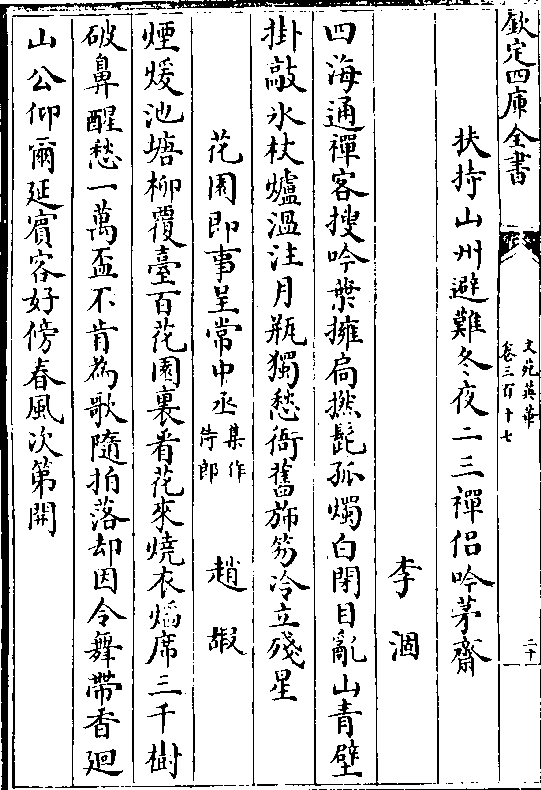 欽定四庫全書
文苑英華
卷三百十七
二十一
扶持山州避難冬夜二三禪侶吟茅齋
李洞
四海通禪客搜吟葉擁扃撚髭孤燭白閉目亂山青壁
掛敲氷杖爐溫注月瓶獨愁衙舊斾笏冷立殘星
花園即事呈常中丞集作侍郎
趙嘏
煙煖池塘柳覆臺百花園裏看花來燒衣焰席三千樹
破鼻醒愁一萬盃不肯為歌隨拍落却因令舞帶香迴
山公仰爾延賓客好傍春風次第開